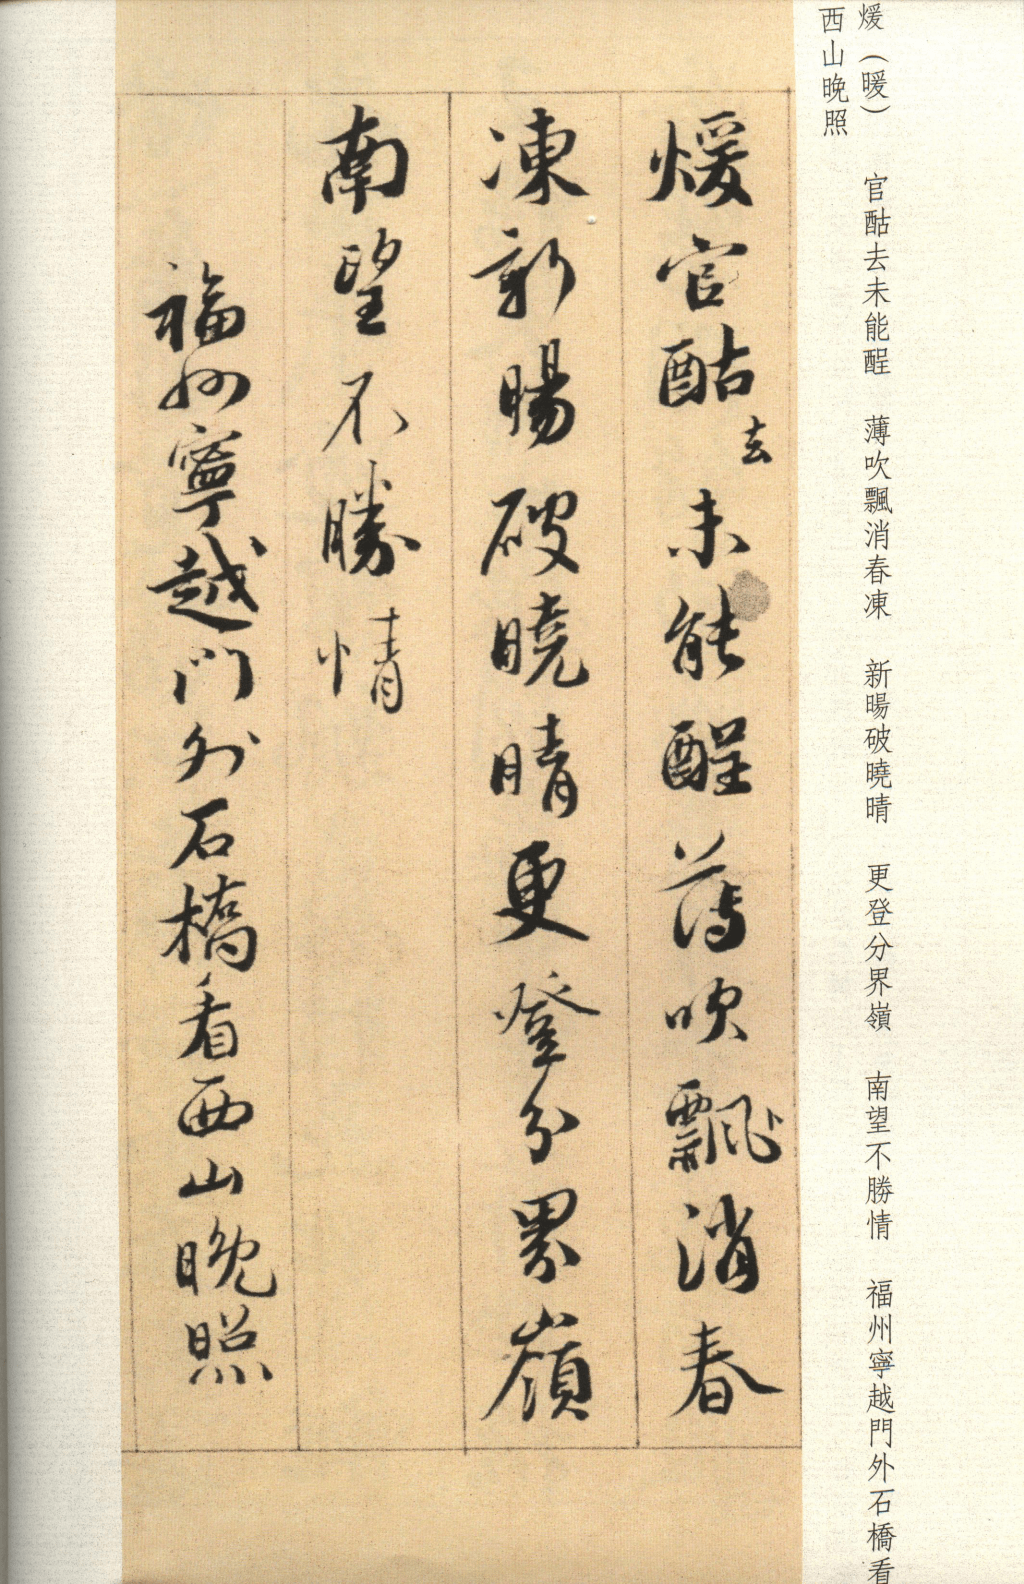 煖（暖） 官酤去未能醒 薄吹飄消春凍 新暘破曉晴 更登分界嶺 南望不勝情 福州寧越門外石橋看
西山晚照
煖官酤去未能醒薄吹飄消春
凍新暘破曉晴更登分界嶺
南望不勝情
福州寧越門外石橋看西山晚照